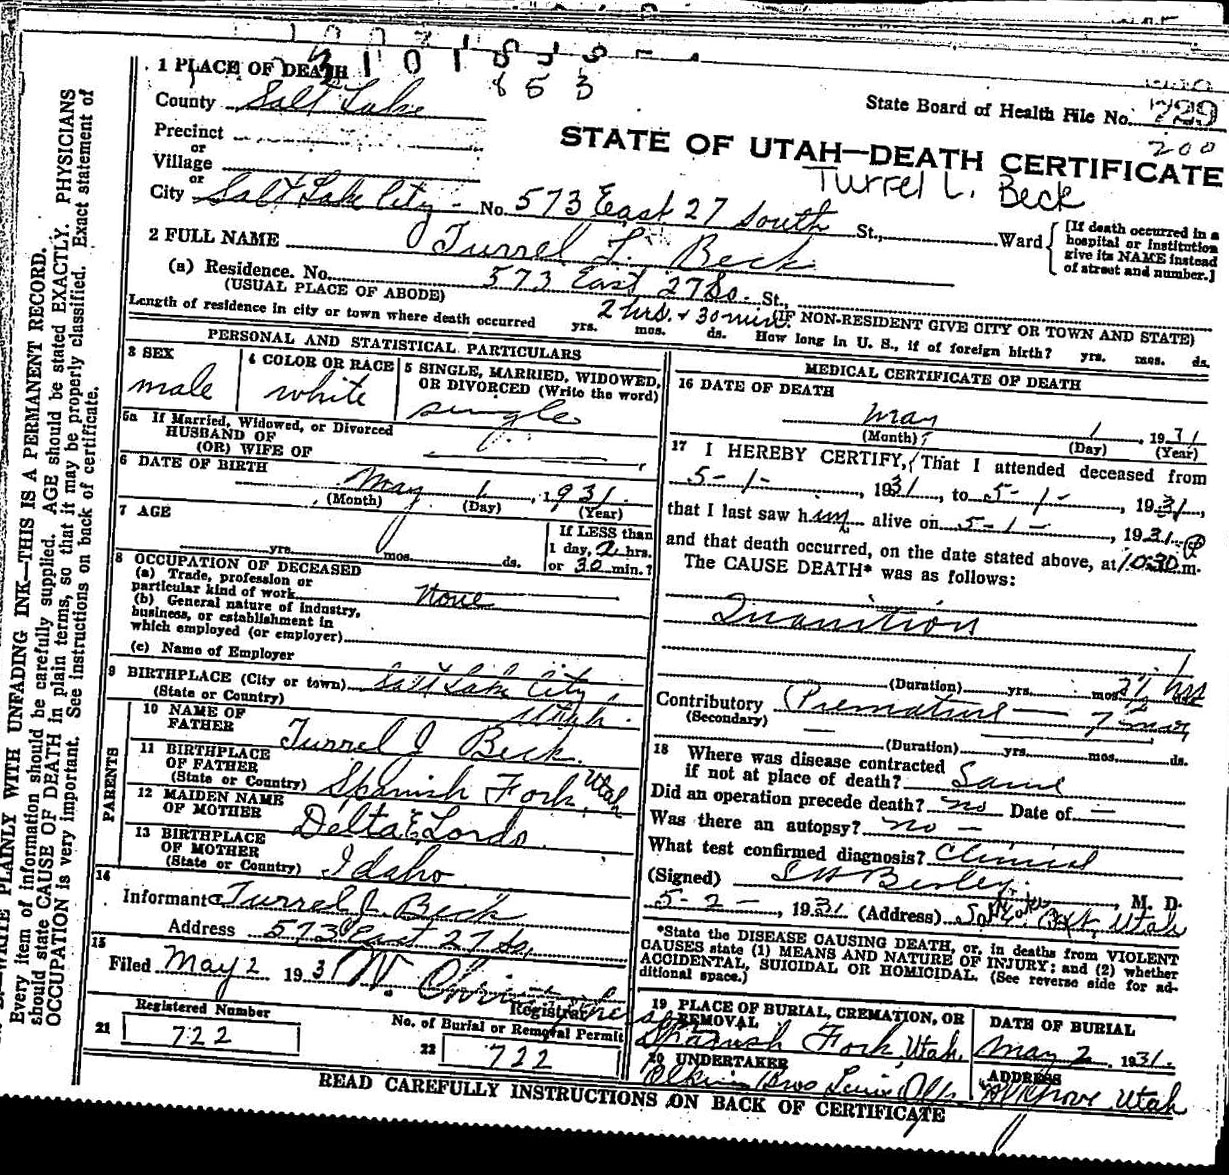 1 PLACE OF DEATH
County Salt Lake
853
State Board of Health File No. 729
200
Precinct
or
Village
or
STATE OF UTAH—DEATH CERTIFICATE
Turrel L. Beck
City Salt Lake City - No. 573 East 27 South St., Ward
[If death occurred in a
hospital or institution
give its NAME instead
of street and number.]
2 FULL NAME Turrel L. Beck
(a) Residence. No. 573 East 27 So. St.,
(USUAL PLACE OF ABODE)
(IF NON-RESIDENT GIVE CITY OR TOWN AND STATE)
Length of residence in city or town where death occurred yrs. mos. ds. 2 hrs. + 30 min. How long in U. S., if of foreign birth? yrs. mos. ds.
PERSONAL AND STATISTICAL PARTICULARS
3 SEX
male
4 COLOR OR RACE
white
5 SINGLE, MARRIED, WIDOWED,
OR DIVORCED (Write the word)
single
5a If Married, Widowed, or Divorced
HUSBAND OF
(OR) WIFE OF
6 DATE OF BIRTH
May 1, 1931.
(Month) (Day) (Year)
7 AGE
yrs. mos. ds.
If LESS than
1 day, 2 hrs.
or 30 min.?
8 OCCUPATION OF DECEASED
(a) Trade, profession or
particular kind of work None
(b) General nature of industry,
business, or establishment in
which employed (or employer)
(c) Name of Employer
9 BIRTHPLACE (City or town) Salt Lake City,
(State or Country) Utah.
PARENTS
10 NAME OF
FATHER Turrel J Beck.
11 BIRTHPLACE
OF FATHER
(State or Country) Spanish Fork, Utah
12 MAIDEN NAME
OF MOTHER Delta E. Lords
13 BIRTHPLACE
OF MOTHER
(State or Country) Idaho.
14
Informant Turrel J. Beck
Address 573 East 27 So.
15
Filed May 2 1931
Registrar
Registered Number
21 722
No. of Burial or Removal Permit
22 722
MEDICAL CERTIFICATE OF DEATH
16 DATE OF DEATH
May 1, 1931
(Month) (Day) (Year)
17 I HEREBY CERTIFY, That I attended deceased from
5-1-, 1931, to 5-1-, 1931,
that I last saw him alive on 5-1-, 1931
and that death occurred, on the date stated above, at 10:30 P m.
The CAUSE DEATH* was as follows:
Inanition
(Duration) yrs. mos. ds. 2½ hrs
Contributory Premature — 7 mos
(Secondary)
(Duration) yrs. mos. ds.
18 Where was disease contracted
if not at place of death? Same
Did an operation precede death? no Date of —
Was there an autopsy? no -
What test confirmed diagnosis? Clinical
(Signed) , M. D.
5-2-, 1931 (Address) Utah
*State the DISEASE CAUSING DEATH, or, in deaths from VIOLENT
CAUSES state (1) MEANS AND NATURE OF INJURY; and (2) whether
ACCIDENTAL, SUICIDAL OR HOMICIDAL. (See reverse side for ad-
ditional space.)
19 PLACE OF BURIAL, CREMATION, OR
REMOVAL
Spanish Fork, Utah.
DATE OF BURIAL
May 2, 1931.
20 UNDERTAKER
Bros
ADDRESS
Utah
READ CAREFULLY INSTRUCTIONS ON BACK OF CERTIFICATE
WRITE PLAINLY WITH UNFADING INK—THIS IS A PERMANENT RECORD.
Every item of information should be carefully supplied. AGE should be stated EXACTLY. PHYSICIANS
should state CAUSE OF DEATH in plain terms, so that it may be properly classified. Exact statement of
OCCUPATION is very important. See instructions on back of certificate.